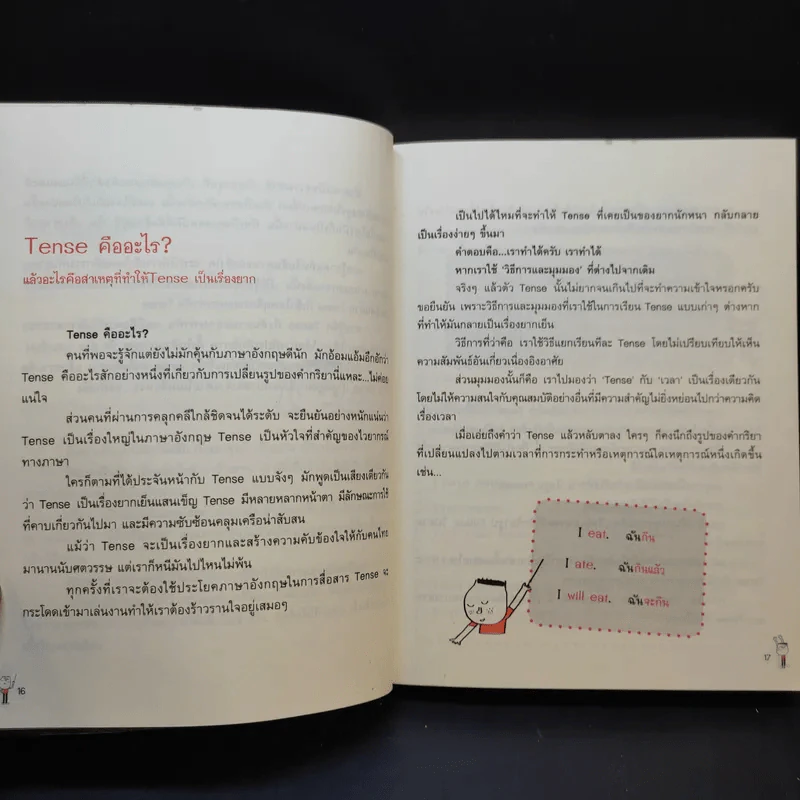 Tense คืออะไร?
แล้วอะไรคือสาเหตุที่ทำให้Tense เป็นเรื่องยาก
Tense คืออะไร?
คนที่พอจะรู้จักแต่ยังไม่มักคุ้นกับภาษาอังกฤษดีนัก มักอ้อมแอ้มอึกอักว่า
Tense คืออะไรสักอย่างหนึ่งที่เกี่ยวกับการเปลี่ยนรูปของคำกริยานี่แหละ...ไม่ค่อย
แน่ใจ
ส่วนคนที่ผ่านการคลุกคลีใกล้ชิดจนได้ระดับ จะยืนยันอย่างหนักแน่นว่า
Tense เป็นเรื่องใหญ่ในภาษาอังกฤษ Tense เป็นหัวใจที่สำคัญของไวยากรณ์
ทางภาษา
ใครก็ตามที่ได้ประจันหน้ากับ Tense แบบจังๆ มักพูดเป็นเสียงเดียวกัน
ว่า Tense เป็นเรื่องยากเย็นแสนเข็ญ Tense มีหลายหลากหน้าตา มีลักษณะการใช้
ที่คาบเกี่ยวกันไปมา และมีความซับซ้อนคลุมเครือน่าสับสน
แม้ว่า Tense จะเป็นเรื่องยากและสร้างความคับข้องใจให้กับคนไทย
มานานนับศตวรรษ แต่เราก็หนีมันไปไหนไม่พ้น
ทุกครั้งที่เราจะต้องใช้ประโยคภาษาอังกฤษในการสื่อสาร Tense จะ
กระโดดเข้ามาเล่นงานทำให้เราต้องร้าวรานใจอยู่เสมอๆ
16
เป็นไปได้ไหมที่จะทำให้ Tense ที่เคยเป็นของยากนักหนา กลับกลาย
เป็นเรื่องง่ายๆ ขึ้นมา
คำตอบคือ...เราทำได้ครับ เราทำได้
หากเราใช้ 'วิธีการและมุมมอง' ที่ต่างไปจากเดิม
จริงๆ แล้วตัว Tense นั้นไม่ยากจนเกินไปที่จะทำความเข้าใจหรอกครับ
ขอยืนยัน เพราะวิธีการและมุมมองที่เราใช้ในการเรียน Tense แบบเก่าๆ ต่างหาก
ที่ทำให้มันกลายเป็นเรื่องยากเย็น
วิธีการที่ว่าคือ เราใช้วิธีแยกเรียนทีละ Tense โดยไม่เปรียบเทียบให้เห็น
ความสัมพันธ์อันเกี่ยวเนื่องอิงอาศัย
ส่วนมุมมองนั้นก็คือ เราไปมองว่า 'Tense' กับ 'เวลา' เป็นเรื่องเดียวกัน
โดยไม่ให้ความสนใจกับคุณสมบัติอย่างอื่นที่มีความสำคัญไม่ยิ่งหย่อนไปกว่าความคิด
เรื่องเวลา
เมื่อเอ่ยถึงคำว่า Tense แล้วหลับตาลง ใครๆ ก็คงนึกถึงรูปของคำกริยา
ที่เปลี่ยนแปลงไปตามเวลาที่การกระทำหรือเหตุการณ์ใดเหตุการณ์หนึ่งเกิดขึ้น
เช่น...
I eat. ฉันกิน
I ate. ฉันกินแล้ว
I will eat. ฉันจะกิน
17